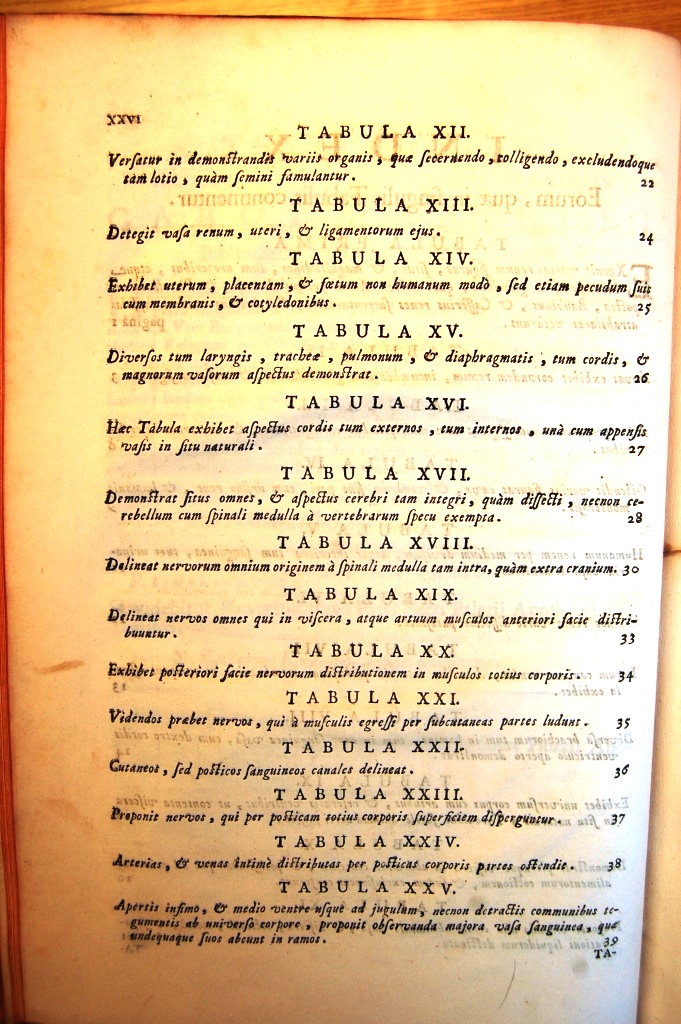 XXVI
TABULA XII.
Verſatur in demonſtrandis variis organis, quæ ſecernendo, colligendo, excludendoque
tam lotio, quàm ſemini famulantur. 22
TABULA XIII.
Detegit vaſa renum, uteri, & ligamentorum ejus. 24
TABULA XIV.
Exhibet uterum, placentam, & fœtum non humanum modò, ſed etiam pecudum ſuis
cum membranis, & cotyledonibus. 25
TABULA XV.
Diverſos tum laryngis, tracheæ, pulmonum, & diaphragmatis, tum cordis, &
magnorum vaſorum aſpectus demonſtrat. 26
TABULA XVI.
Hæc Tabula exhibet aſpectus cordis tum externos, tum internos, unà cum appenſis
vaſis in ſitu naturali. 27
TABULA XVII.
Demonſtrat ſitus omnes, & aſpectus cerebri tam integri, quàm diſſecti, necnon ce-
rebellum cum ſpinali medulla à vertebrarum ſpecu exempta. 28
TABULA XVIII.
Delineat nervorum omnium originem à ſpinali medulla tam intra, quàm extra cranium. 30
TABULA XIX.
Delineat nervos omnes qui in viſcera, atque artuum muſculos anteriori facie diſtri-
buuntur. 33
TABULA XX.
Exhibet poſteriori facie nervorum diſtributionem in muſculos totius corporis. 34
TABULA XXI.
Videndos præbet nervos, qui à muſculis egreſſi per ſubcutaneas partes ludunt. 35
TABULA XXII.
Cutaneos, ſed poſticos ſanguineos canales delineat. 36
TABULA XXIII.
Proponit nervos, qui per poſticam totius corporis ſuperficiem diſperguntur. 37
TABULA XXIV.
Arterias, & venas intimè diſtributas per poſticas corporis partes oſtendit. 38
TABULA XXV.
Apertis infimo, & medio ventre uſque ad jugulum, necnon detractis communibus te-
gumentis ab univerſo corpore, proponit obſervanda majora vaſa ſanguinea, quæ
undequaque ſuos abeunt in ramos. 39
TA-